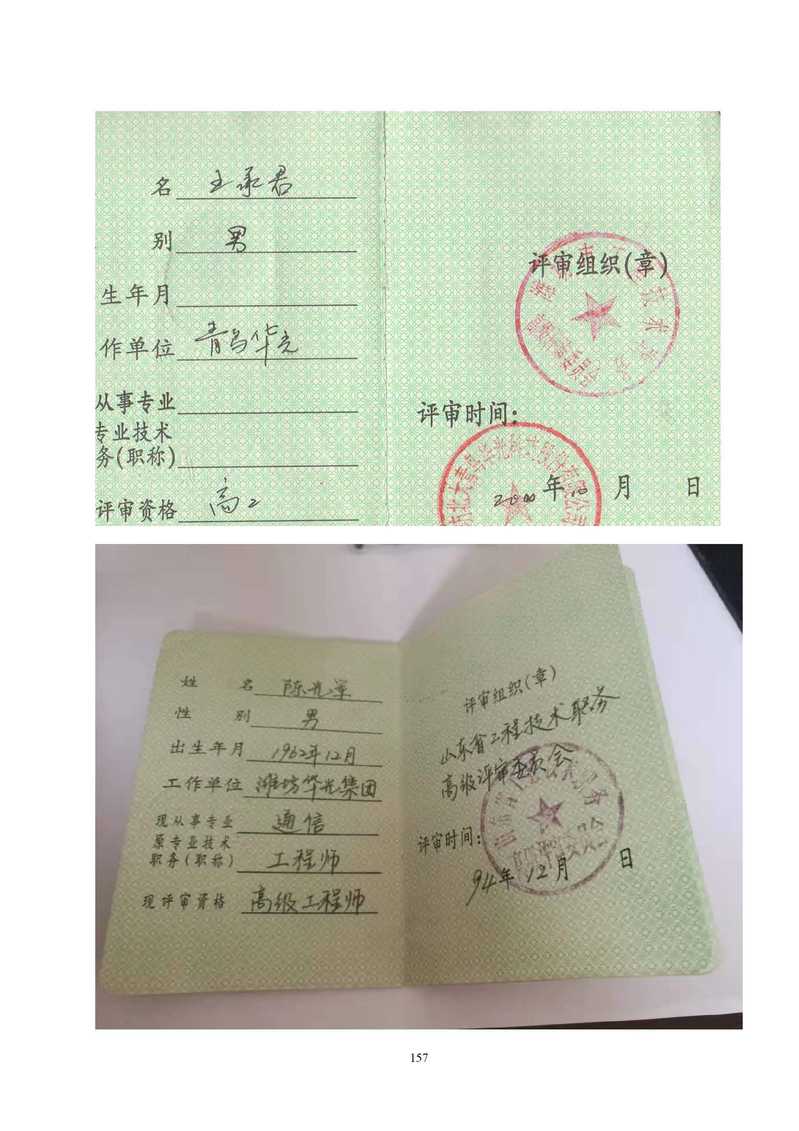 名 王承君
别 男
生年月
作单位 青鸟华光
从事专业
专业技术
务(职称)
评审资格 高工
评审组织(章)
评审时间:
2000年10月 日
姓 名 陈光军
性 别 男
出生年月 1962年12月
工作单位 潍坊华光集团
现从事专业 通信
原专业技术
职务(职称) 工程师
现评审资格 高级工程师
评审组织(章)
山东省工程技术职务
高级评审委员会
评审时间:
94年12月 日
157